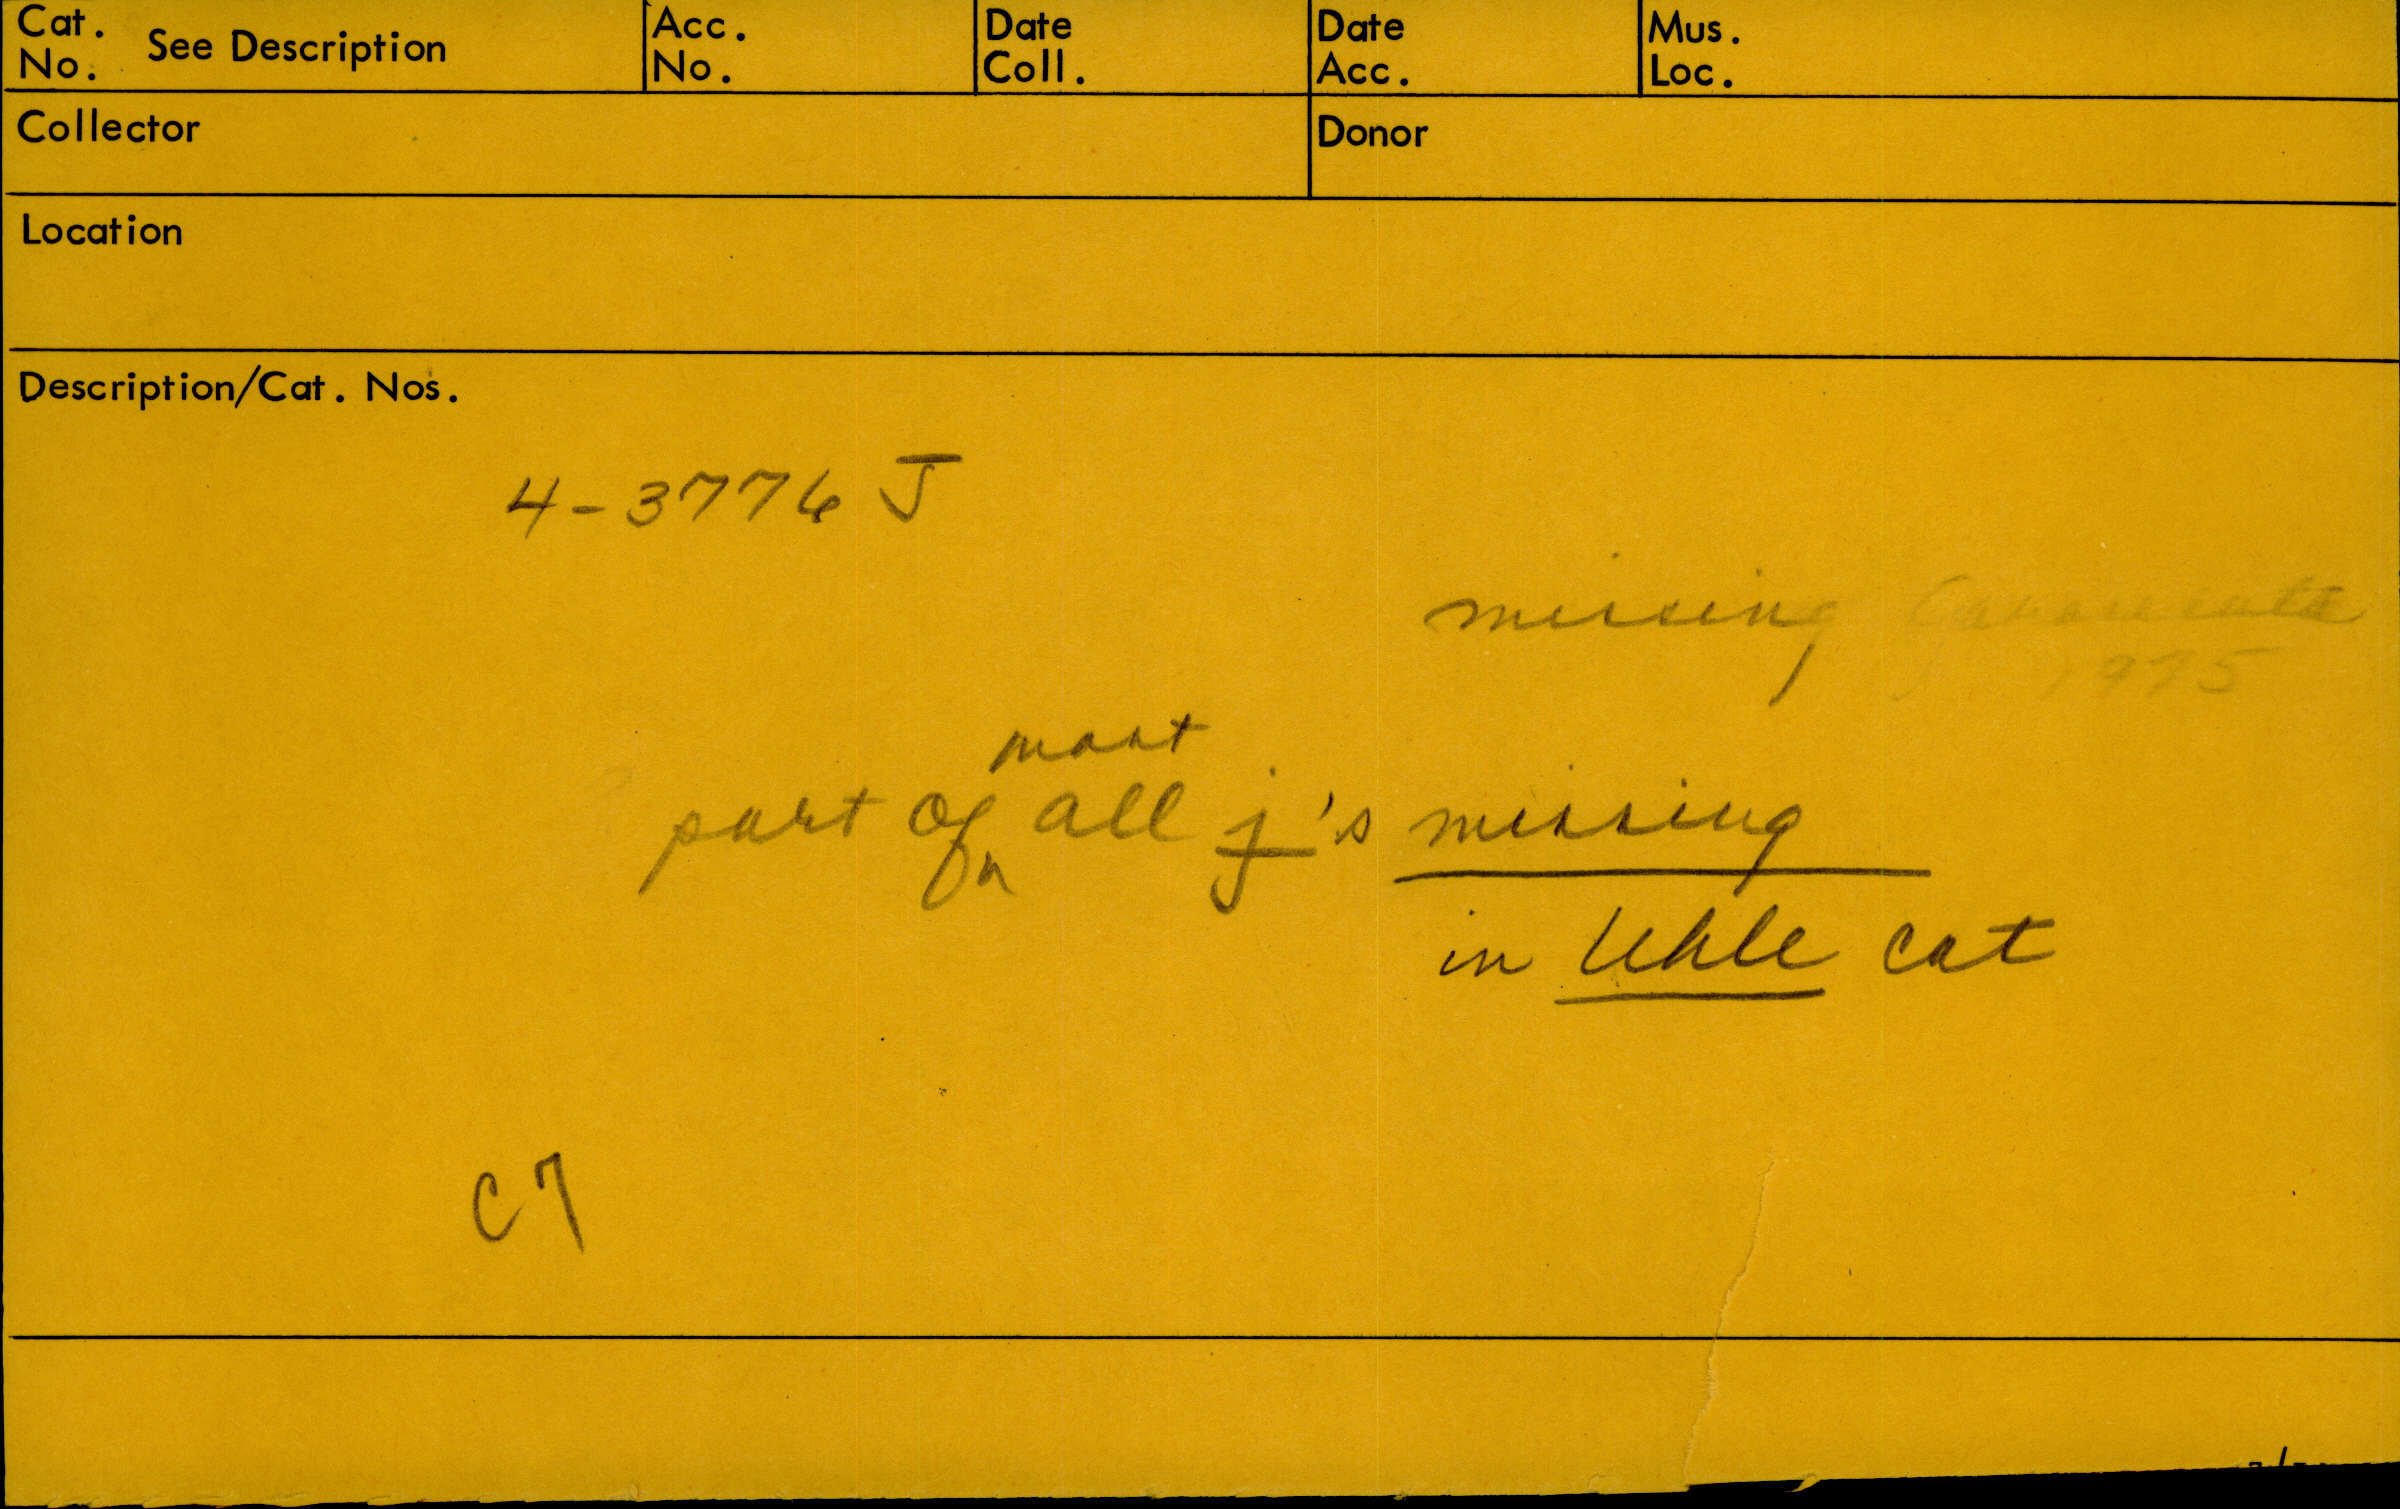 Cat. No. See Description Acc. No. Date Coll. Date Acc. Mus. Loc.
Collector Donor
Location
Description/Cat. Nos.
4-3776 J
missing
1975
most
part of ^ all j's missing
in Uhle cat
C7